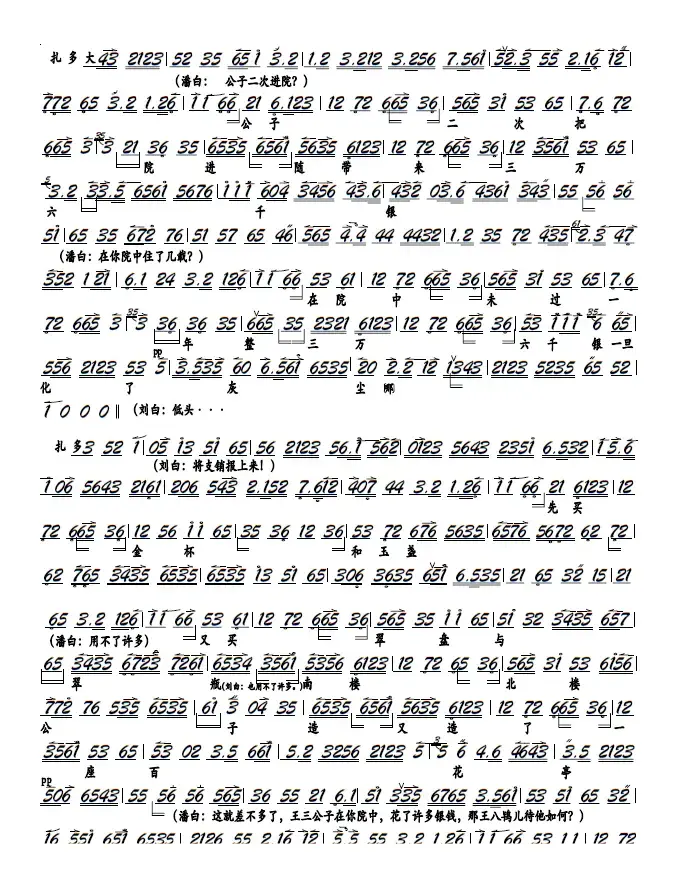 扎多大43 2123|52 35 651 3.2|1.2 3.212 3.256 7.561|52.3 55 2.16 12
(潘白: 公子二次进院?)
772 65 3.2 1.26|11 66 21 6.123|12 72 665 36|565 31 53 65|7.6 72
公 子 二 次 把
665 3 3 21 36 35|6535 6561 5635 6123|12 72 665 36|12 3561 53 65|
院 进 随 带 来 三 万
3.2 33.5 6561 5676|111 604 3456 43.6|432 03.6 4361 343|55 56 56
六 千 银
51|65 35 672 76|51 57 65 46|565 4.4 44 4432|1.2 35 72 435|2.3 47
(潘白: 在你院中住了几载?)
352 121|6.1 24 3.2 126|11 66 53 61|12 72 665 36|565 31 53 65|7.6
在 院 中 未 过 一
72 665 3 3 36 36 35|665 35 2321 6123|12 72 665 36|53 111 6 65|
pp 年 整 三 万 六 千 银 一旦
556 2123 53 5|3.535 60 6.561 6535|20 2.2 12 1343|2123 5235 65 52|
化 了 灰 尘 啷
1 0 0 0‖ (刘白: 低头···
扎多3 52 1|05 13 51 65|56 2123 56.1 562|0123 5643 2351 6.532|15.6
(刘白: 将支销报上来!)
106 5643 2161|206 543 2.152 7.612|407 44 3.2 1.26|11 66 21 6123|12
先 买
72 665 36|12 56 11 65|35 36 12 36|53 72 676 5635|6576 5672 62 72|
金 杯 和 玉 盏
62 765 3435 6535|6535 13 51 65|306 3635 651 6.535|21 65 32 15|21
65 3.2 126|11 66 53 61|12 72 665 36|565 35 11 65|51 32 3435 657|
(潘白: 用不了许多) 又 买 翠 盘 与
65 3435 6723 7261|6534 3561 5356 6123|12 72 65 36|565 31 53 6156|
翠 瓶(刘白: 也用不了许多。)南 楼 北 楼
772 76 535 6535|61 3 04 35|6535 6561 5635 6123|12 72 665 36|12
公 子 造 又 造 了 一
3561 53 65|53 02 3.5 661|5.2 3256 2123 5 5 6 4.6 4643|3.5 2123
pp 座 百 花 亭
506 6543|55 56 56 565|36 55 21 6.1|51 335 6765 3.561|53 51 65 32|
(潘白: 这就差不多了, 王三公子在你院中, 花了许多银钱, 那王八鸨儿待他如何?)
16 551 651 6535|2126 55 2.16 12|5.5 55 3.2 1.26|11 66 53 11|12 72